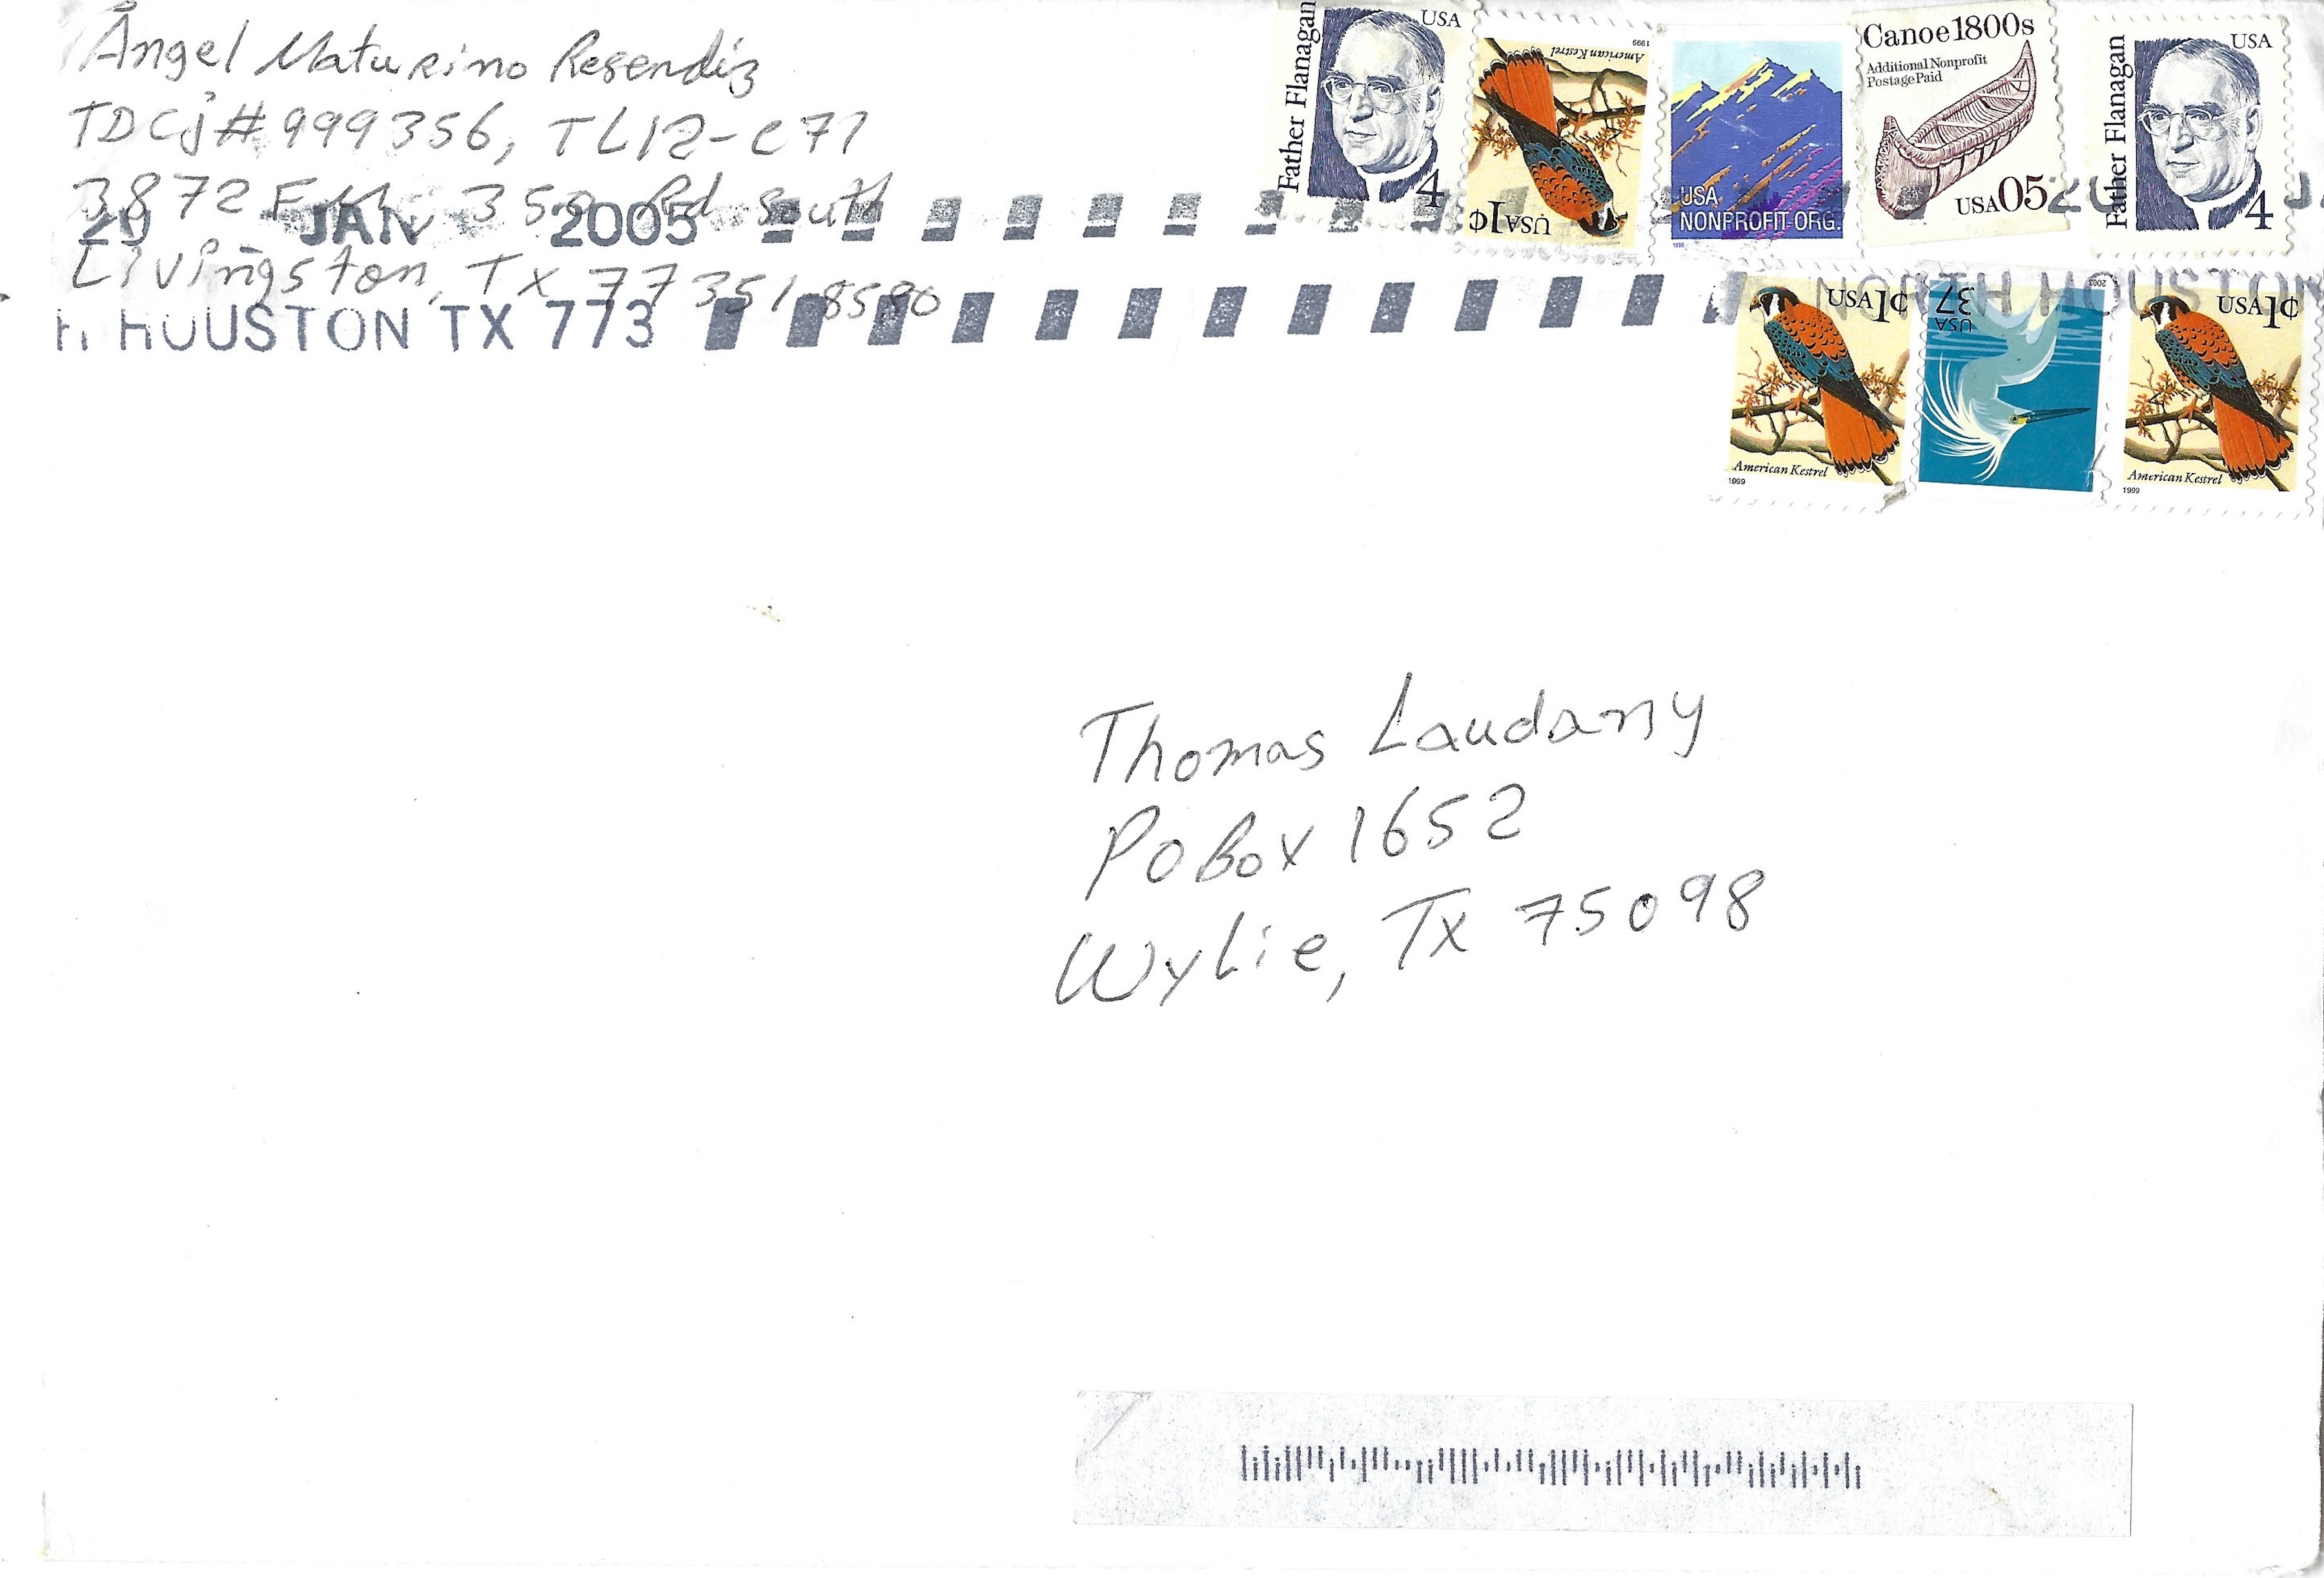 Ángel Maturino Resendiz
TDCJ# 999356, TL12-C71
3872 FM 350 Rd South
Livingston, Tx 77351-8580
JAN 2005
H HOUSTON TX 773
Father Flanagan USA 4
American Kestrel 1999 USA 1¢
USA NONPROFIT ORG. 1996
Canoe 1800s
Additional Nonprofit
Postage Paid
USA 05
Father Flanagan USA 4
NORTH HOUSTON
USA 1¢ American Kestrel 1999
USA 37 2003
USA 1¢ American Kestrel 1999
Thomas Laudany
PO Box 1652
Wylie, Tx 75098